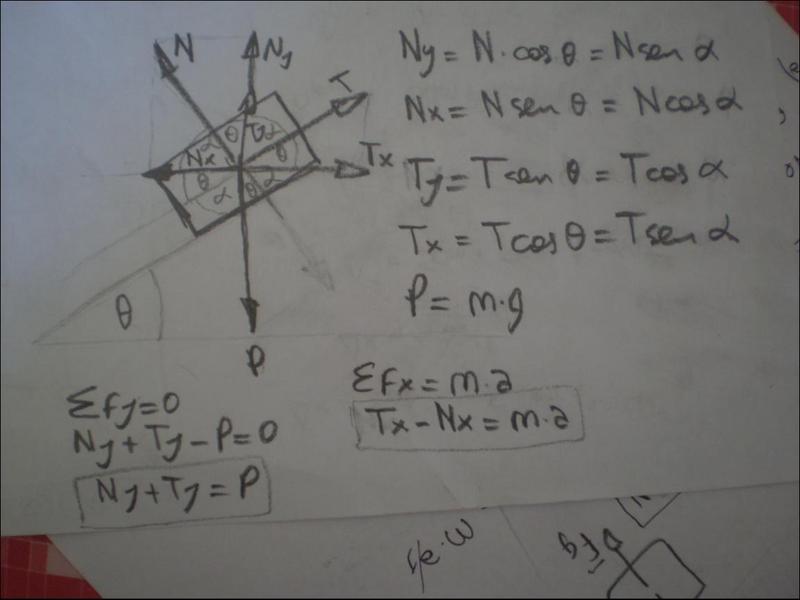 N
Ny
T
α
θ
Ty
α
Nx
θ
Tx
θ
α
α
θ
θ
P
Ny = N · cos θ = N sen α
Nx = N sen θ = N cos α
Ty = T sen θ = T cos α
Tx = T cos θ = T sen α
P = m·g
Σfy=0
Ny + Ty - P = 0
Ny + Ty = P
Σfx = m·a
Tx - Nx = m·a